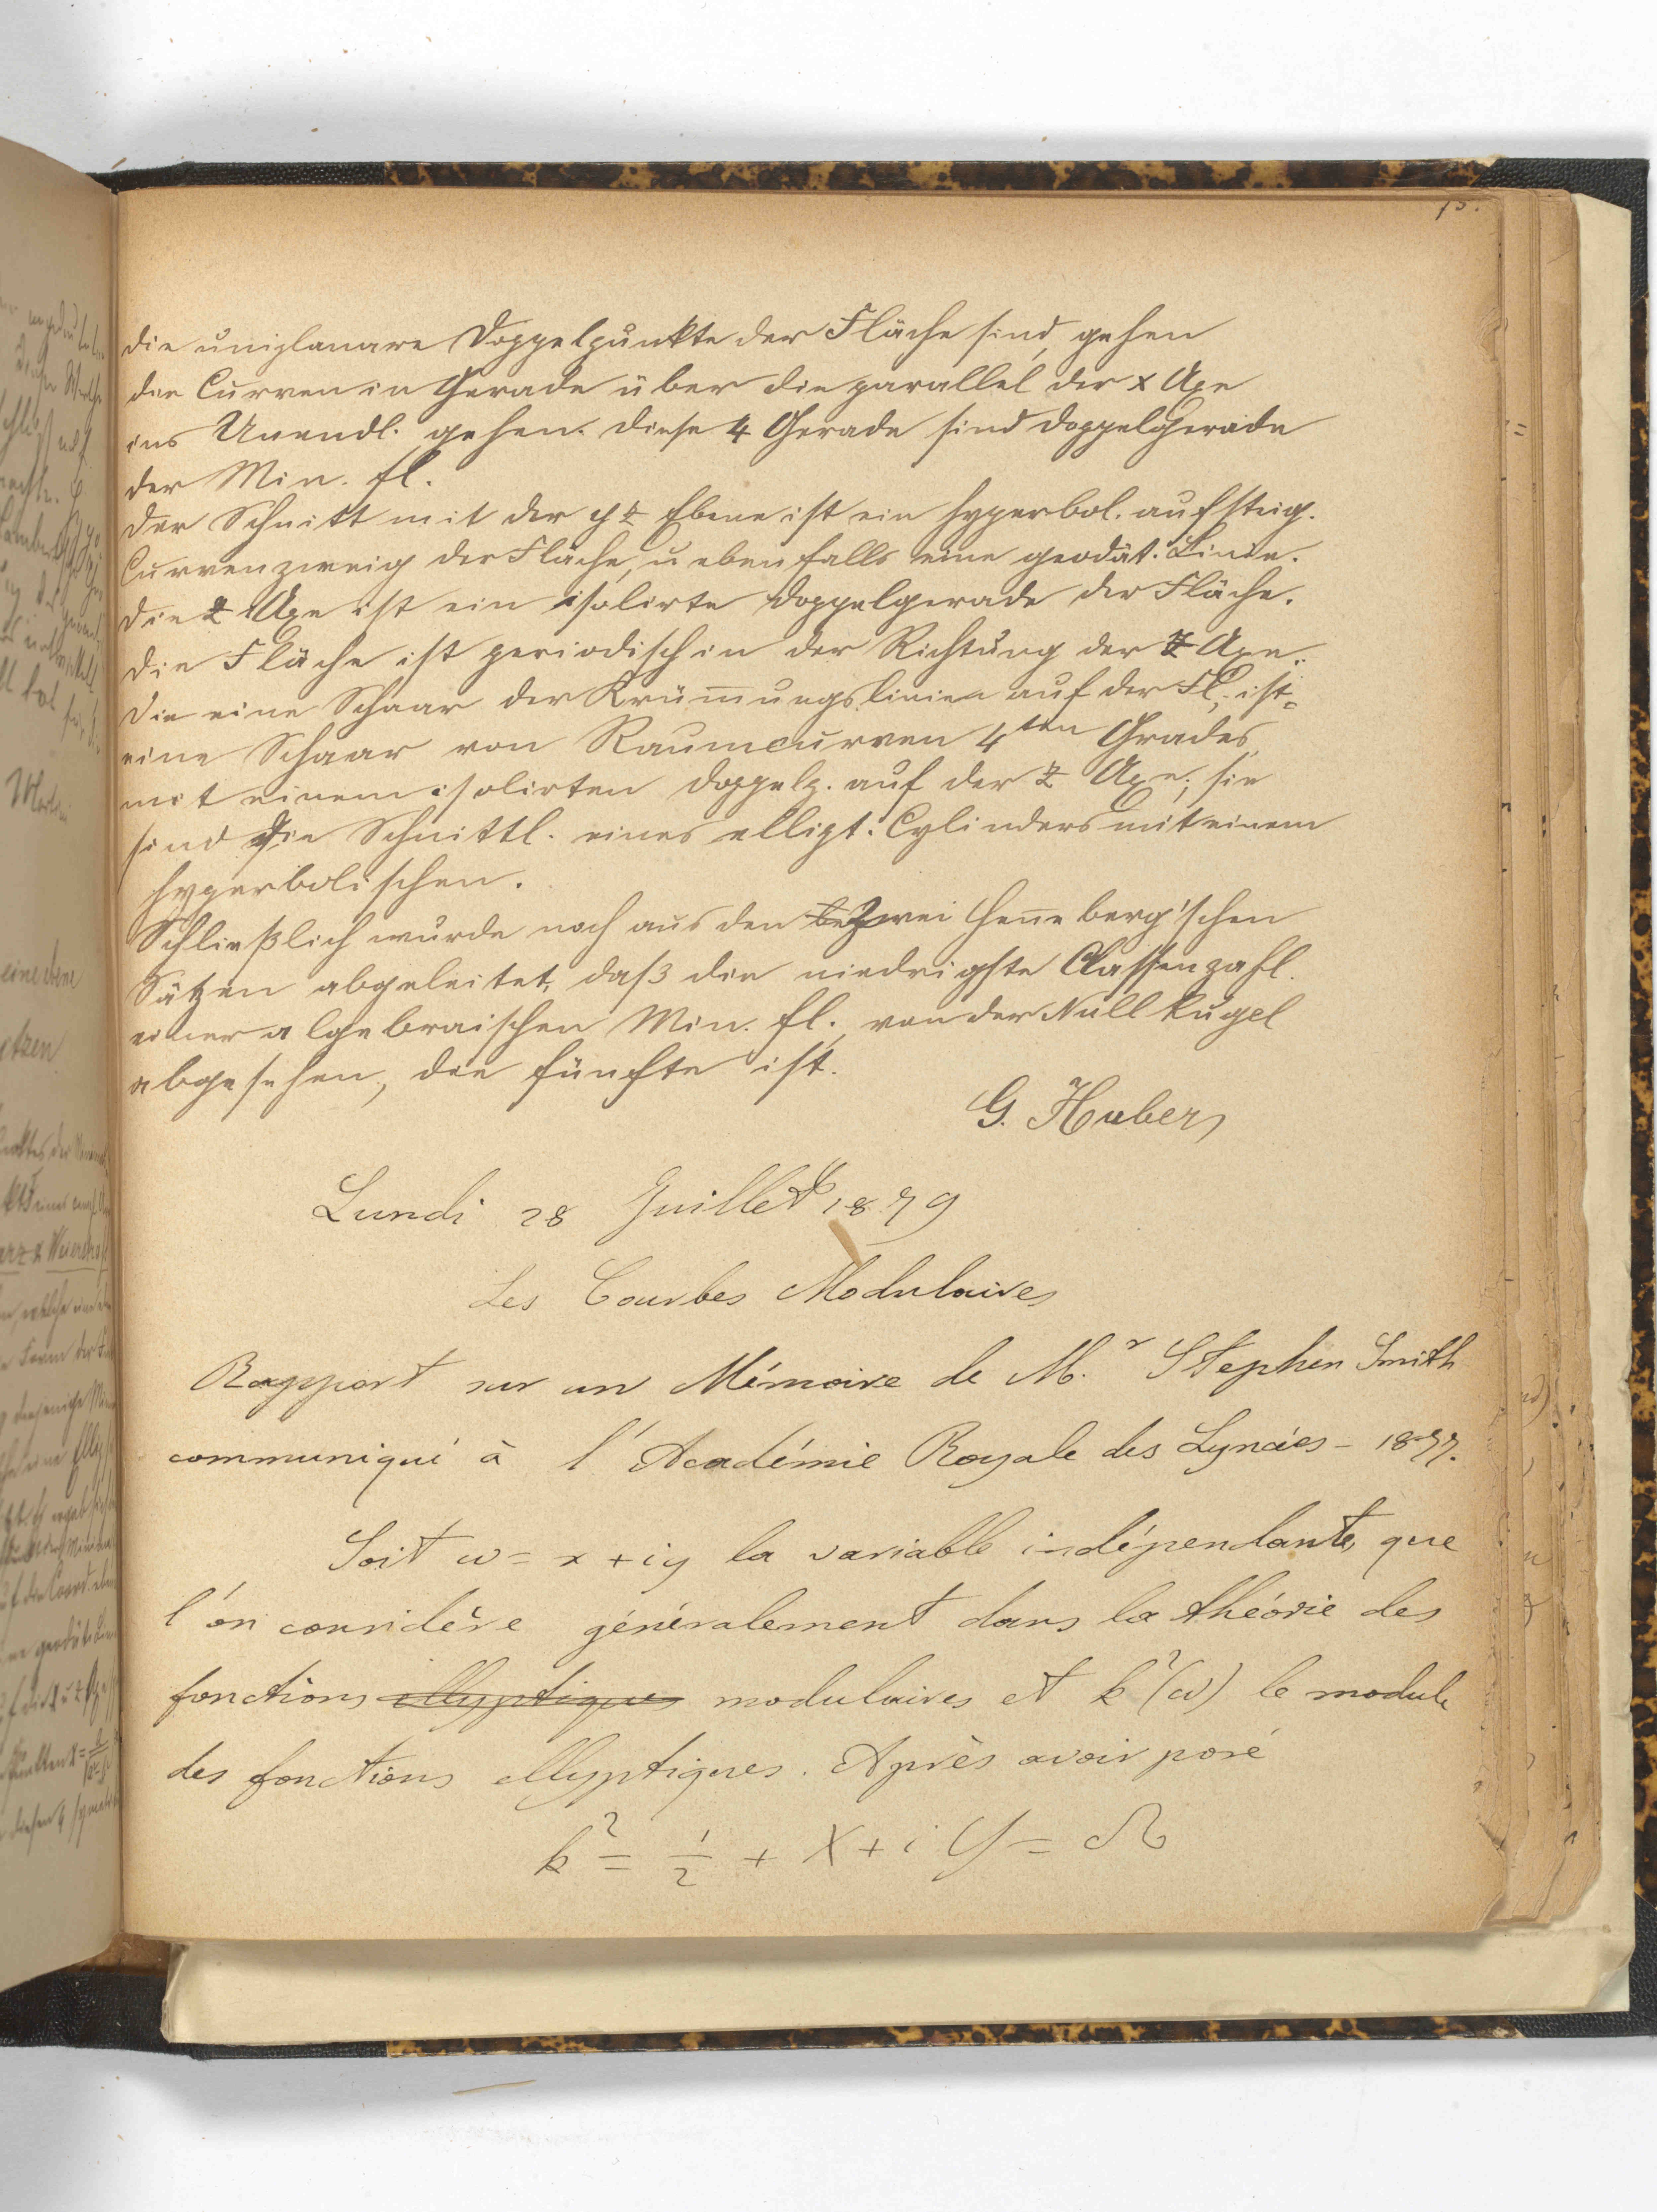 15.
die uniplanare Doppelpunkte der Fläche sind, gehen
die Curven in Gerade über die parallel der x Axe
ins Unendl. gehen. Diese 4 Gerade sind Doppelgerade
der Min. fl.
Der Schnitt mit der yz Ebene ist ein hyperbol. aufsteig.
Curvenzweig der Fläche, u ebenfalls eine geodät. Linie.
Die z Axe ist ein isolirte Doppelgerade der Fläche.
Die Fläche ist periodisch in der Richtung der z Axe.
Die eine Schaar der Krüm̄ungslinien auf der Fl. ist
eine Schaar von Raumcurven 4ten Grades,
mit einem isolirten Doppelp. auf der z Axe; sie
sind die Schnittl. eines ellipt. Cylinders mit einem
hyperbolischen.
Schließlich wurde noch aus den zwei Hen̄eberg'schen
Sätzen abgeleitet, daß die niedrigste Classenzahl
einer algebraischen Min. fl., von der Nullkugel
abgesehen, die fünfte ist.
G. Huber
Lundi 28 Juillet 1879
Les Courbes Modulaires
Rapport sur un Mémoire de M.r Stephen Smith
communiqué à l'Académie Royale des Lyncées - 1877.
Soit ω = x + iy la variable indépendante, que
l'on considère généralement dans la théorie des
fonctions ellyptiques modulaires et k²(ω) le module
des fonctions ellyptiques. Après avoir posé
k² = 1/2 + X + i Y = Ω